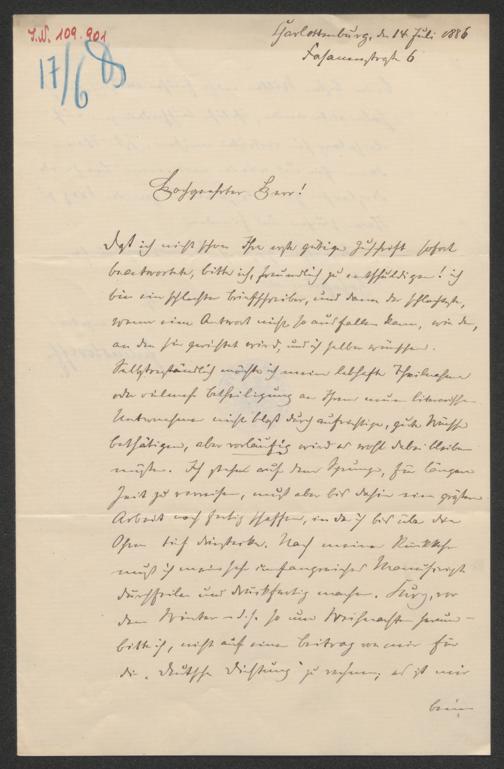 I.N. 109.901
17/6 86
Charlottenburg, den 14 Juli 1886
Fasanenstraße 6
Hochgeehrter Herr!
Daß ich nicht schon Ihre erste gütige Zuschrift sofort
beantwortete, bitte ich, freundlich zu entschuldigen! ich
bin ein schlechter Briefschreiber, und dann der schlechteste,
wenn eine Antwort nicht so ausfallen kann, wie der,
an den sie gerichtet wird, und ich selber wünschen.
Selbstverständlich möchte ich meine lebhafte Theilnahme
oder vielmehr Betheiligung an Ihrem neuen literarischen
Unternehmen nicht bloß durch aufrichtige, gute Wünsche
bethätigen, aber vorläufig wird es wohl dabei bleiben
müssen. Ich stehe auf dem Sprunge, für längere
Zeit zu verreisen, muß aber bis dahin eine größere
Arbeit noch fertig schaffen, in der ich bis über die
Ohren tief drinstecke. Nach meiner Rückkehr
muß ich ein sehr umfangreiches Manuscript
durchfeilen und druckfertig machen. Kurz, vor
dem Winter – d. h. so um Weihnachten herum –
bitte ich, nicht auf einen Beitrag von mir für
die „Deutsche Dichtung" zu rechnen; es ist mir
beim